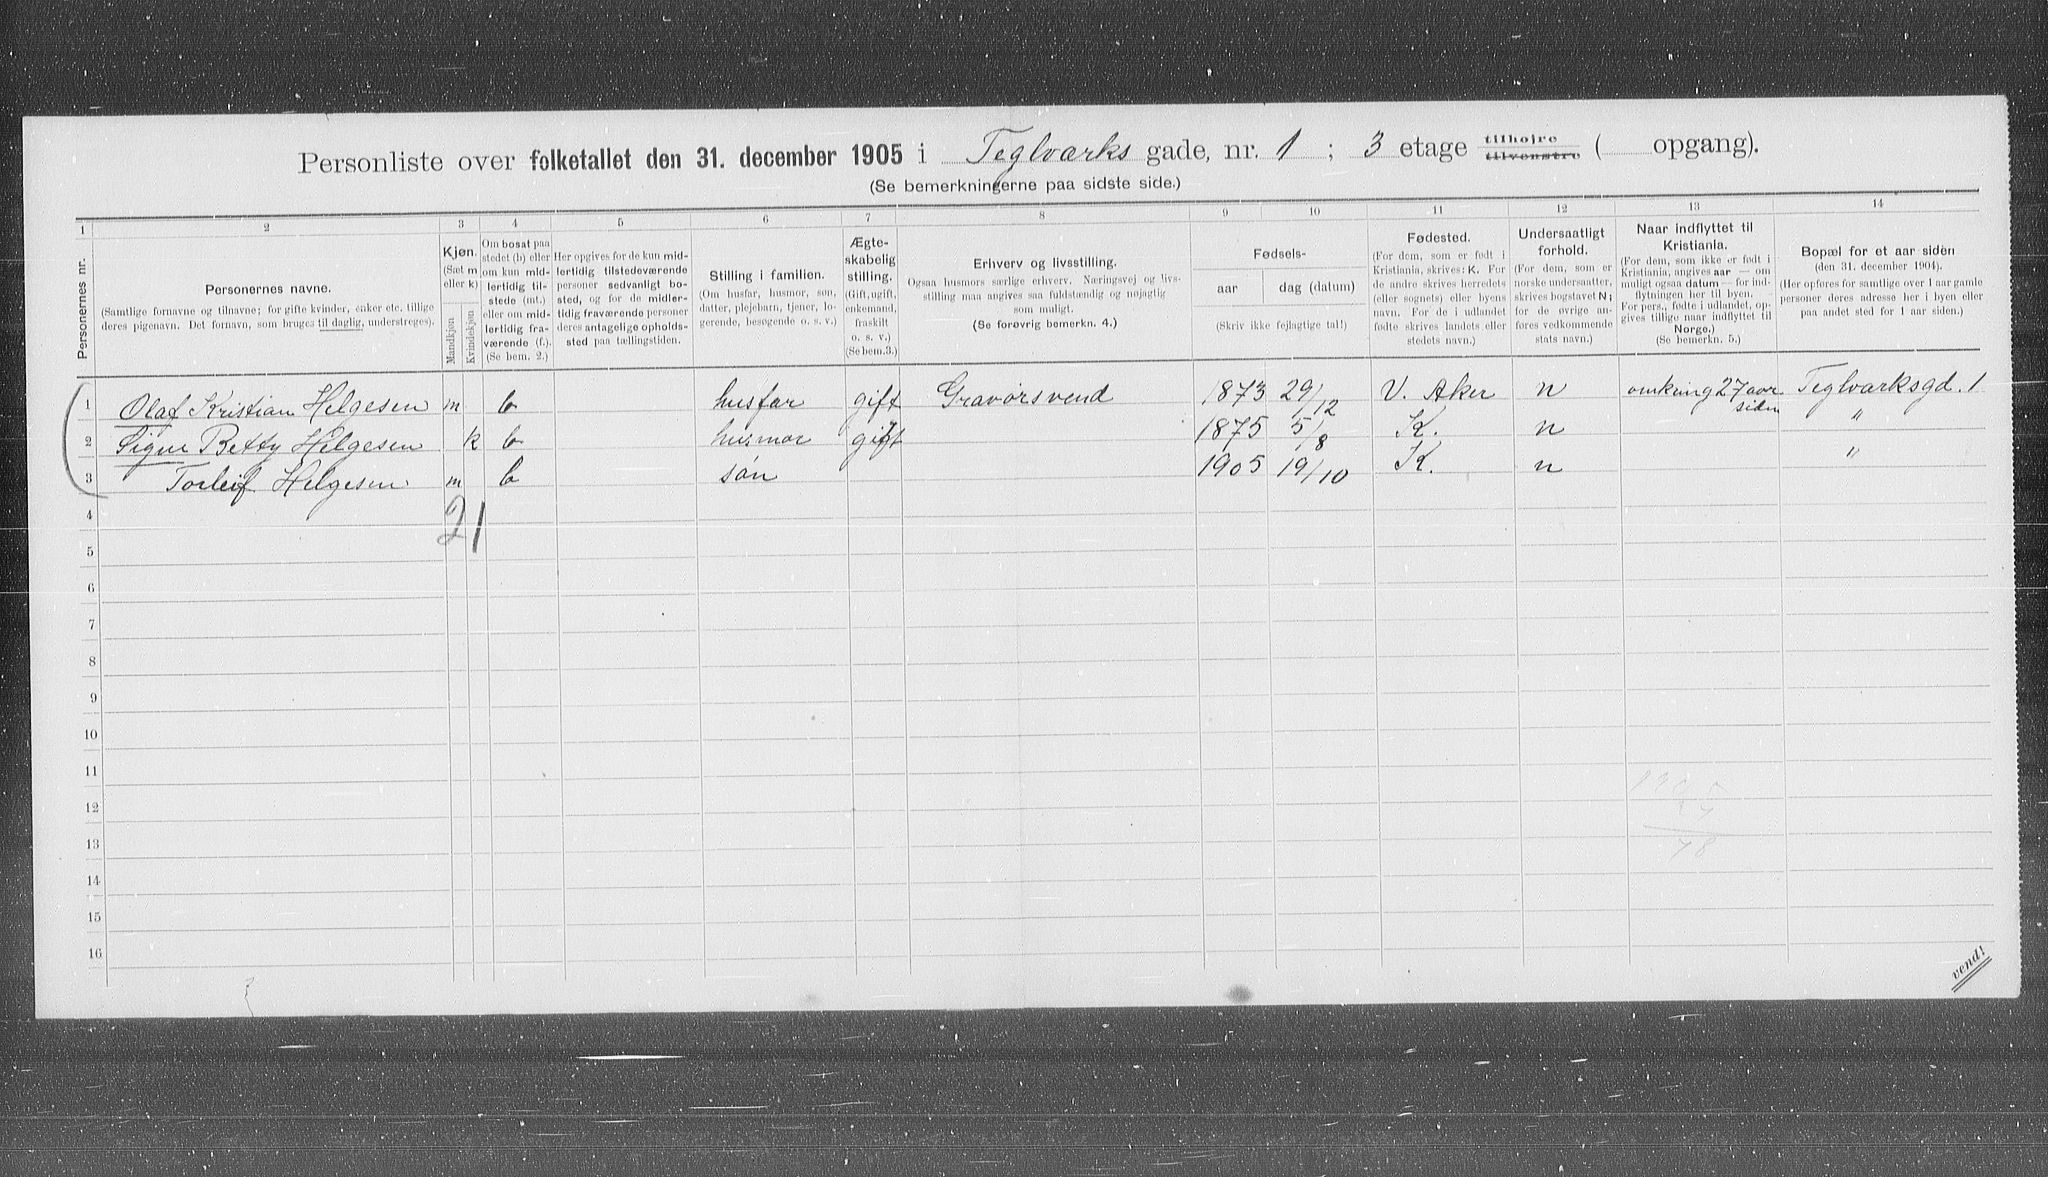 Personliste over folketallet den 31. december 1905 i Teglværks gade, nr. 1 ; 3 etage tilhøjre tilvenstre ( opgang).
(Se bemerkningerne paa sidste side.)
1 2 3 4 5 6 7 8 9 10 11 12 13 14
Personernes nr.
Personernes navne.
(Samtlige fornavne og tilnavne; for gifte kvinder, enker etc. tillige
deres pigenavn. Det fornavn, som bruges til daglig, understreges).
Kjøn.
(Sæt m
eller k)
Mandkjøn
Kvindekjøn
Om bosat paa
stedet (b) eller
om kun mid-
lertidig til-
stede (mt.)
eller om mid-
lertidig fra-
værende (f.).
(Se bem. 2.)
Her opgives for de kun mid-
lertidig tilstedeværende
personer sedvanligt bo-
sted, og for de midler-
tidig fraværende personer
deres antagelige opholds-
sted paa tællingstiden.
Stilling i familien.
(Om husfar, husmor, søn,
datter, plejebarn, tjener, lo-
gerende, besøgende o. s. v.)
Ægte-
skabelig
stilling.
(Gift, ugift,
enkemand,
fraskilt
o. s. v.)
(Se bem. 3.)
Erhverv og livsstilling.
Ogsaa husmors særlige erhverv. Næringsvej og livs-
stilling maa angives saa fuldstændig og nøjagtig
som muligt.
(Se forøvrig bemerkn. 4.)
Fødsels-
aar dag (datum)
(Skriv ikke fejlagtige tal!)
Fødested.
(For dem, som er født i
Kristiania, skrives: K. For
de andre skrives herredets
(eller sognets) eller byens
navn. For de i udlandet
fødte skrives landets eller
stedets navn.)
Undersaatligt
forhold.
(For dem, som er
norske undersaatter,
skrives bogstavet N;
for de øvrige an-
føres vedkommende
stats navn.)
Naar indflyttet til
Kristiania.
(For dem, som ikke er født i
Kristiania, angives aar — om
muligt ogsaa datum — for ind-
flytningen her til byen.
For pers., fødte i udlandet, op-
gives tillige naar indflyttet til
Norge.)
(Se bemerkn. 5.)
Bopæl for et aar siden
(den 31. december 1904).
(Her opføres for samtlige over 1 aar gamle
personer deres adresse her i byen eller
paa andet sted for 1 aar siden.)
1 Olaf Kristian Helgesen m b husfar gift Gravørsvend 1873 29/12 V. Aker n omkring 27 aar siden Teglværksgd. 1
2 Signe Betty Helgesen k b husmor gift 1875 5/8 K. n "
3 Torleif Helgesen m b søn 1905 19/10 K. n "
21
4
5
6
7
8
9
10
11
12
13
14
15
16
1905
27
78
vend!